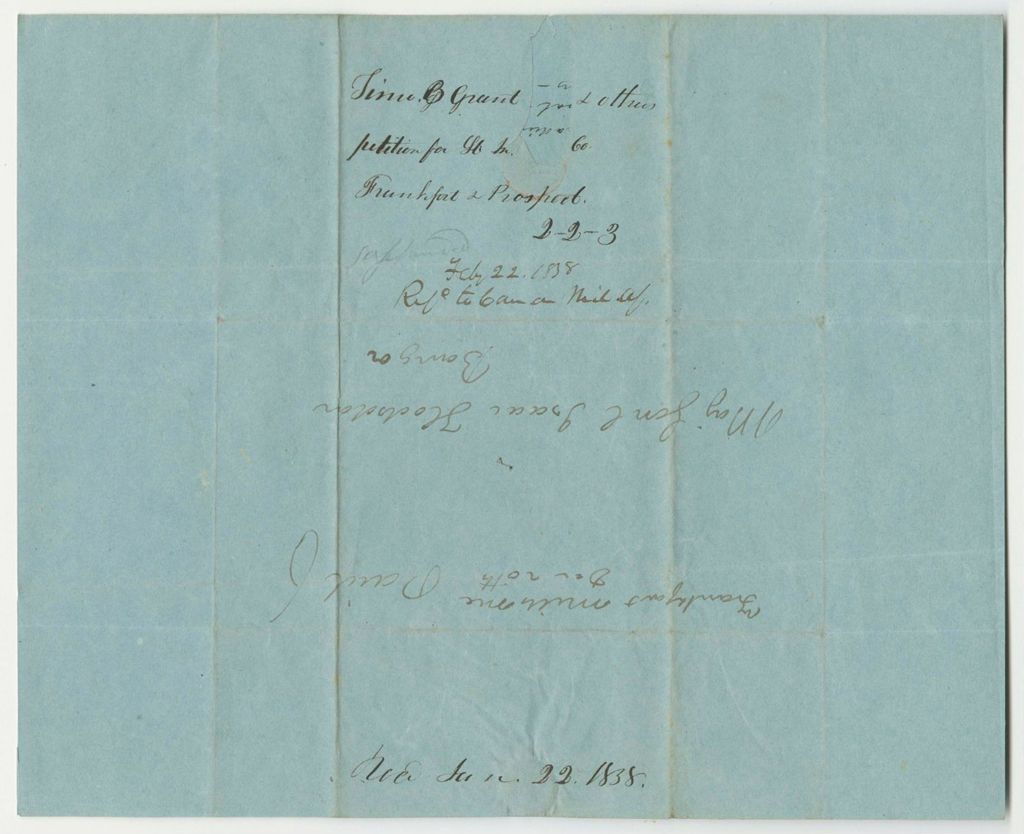 Timo. B Grant & others
petition for Lt In. Co
Frankfort & Prospect.
2-2-3
Feby 22. 1838
Refd to Com on Mil Af.
Bangor
Maj Genl Isaac Hodsdon
Frankfort Mills Me Paid
Dec 20th
Recd Jan. 22. 1838.